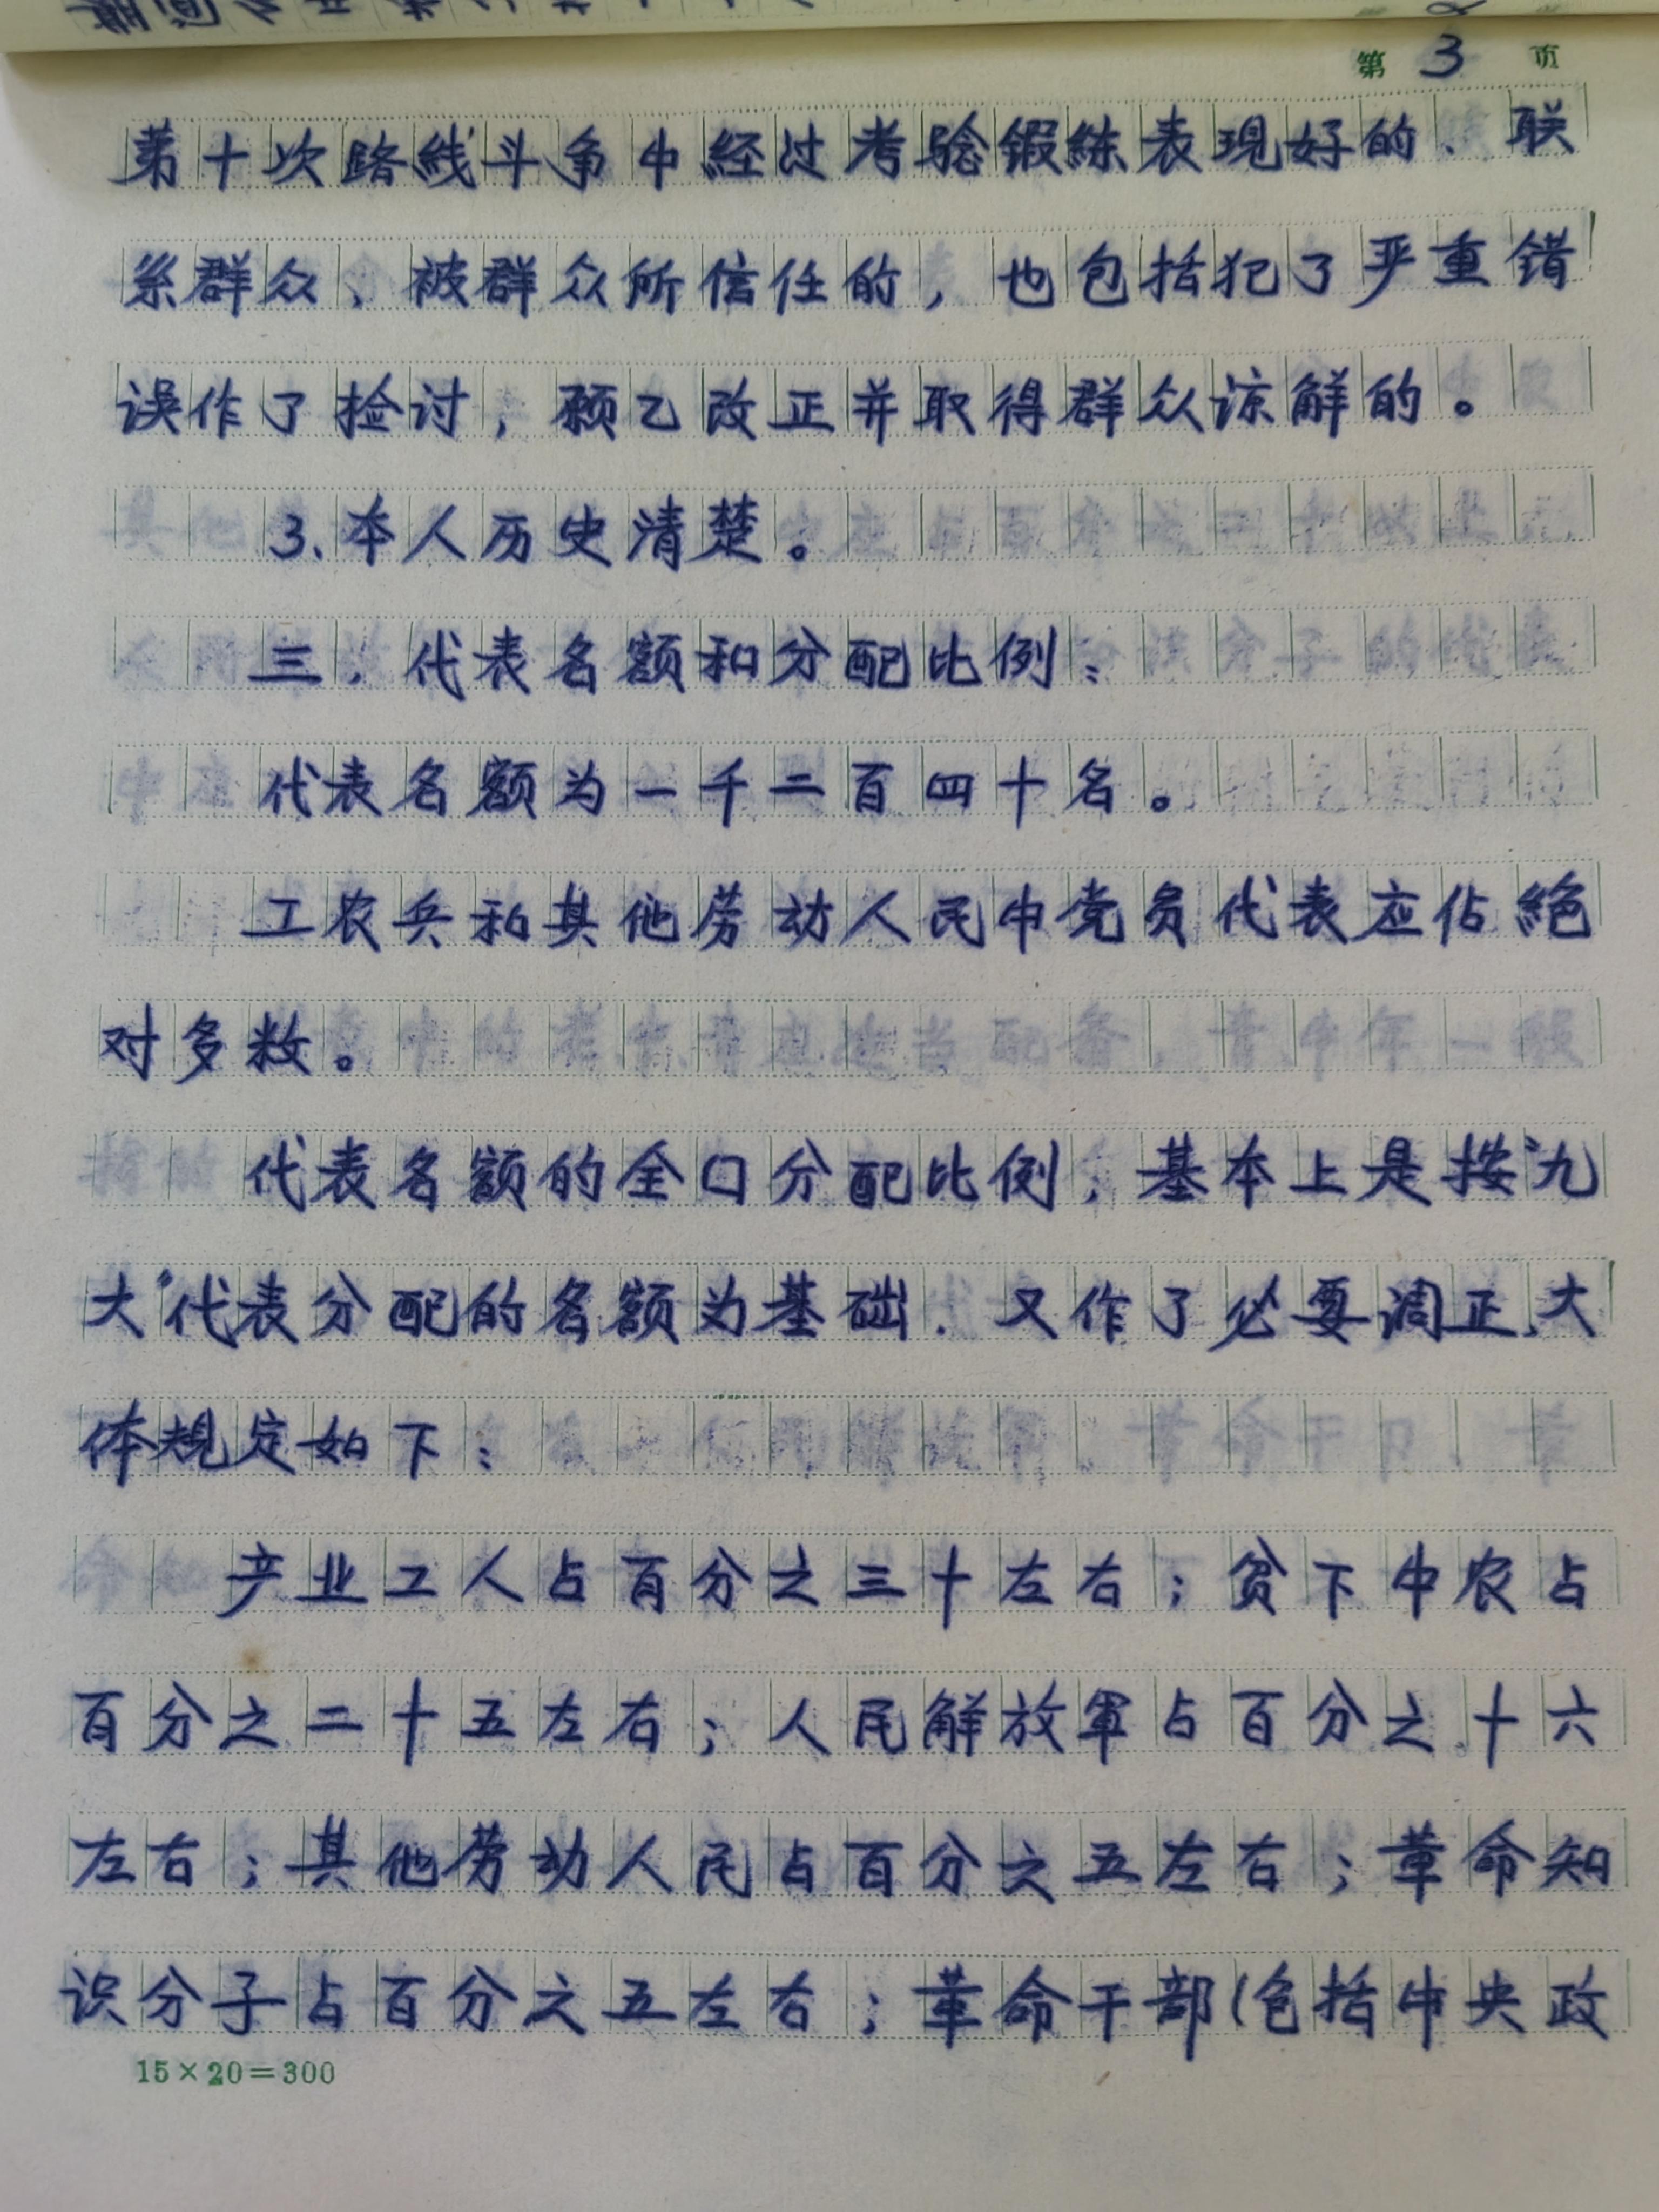 第 3 页
第十次路线斗争中経过考验锻练表现好的、联
系群众、被群众所信任的，也包括犯了严重错
误作了捡讨，愿乙改正并取得群众谅解的。
3、本人历史清楚。
三．代表名额和分配比例：
代表名额为一千二百四十名。
工农兵和其他劳动人民中党员代表应佔絶
对多数。
代表名额的全口分配比例，基本上是按“九
大”代表分配的名额为基础．又作了必要调正、大
体规定如下：
产业工人占百分之三十左右；贫下中农占
百分之二十五左右；人民解放軍占百分之十六
左右；其他劳动人民占百分之五左右；革命知
识分子占百分之五左右；革命干部(包括中央政
15×20=300